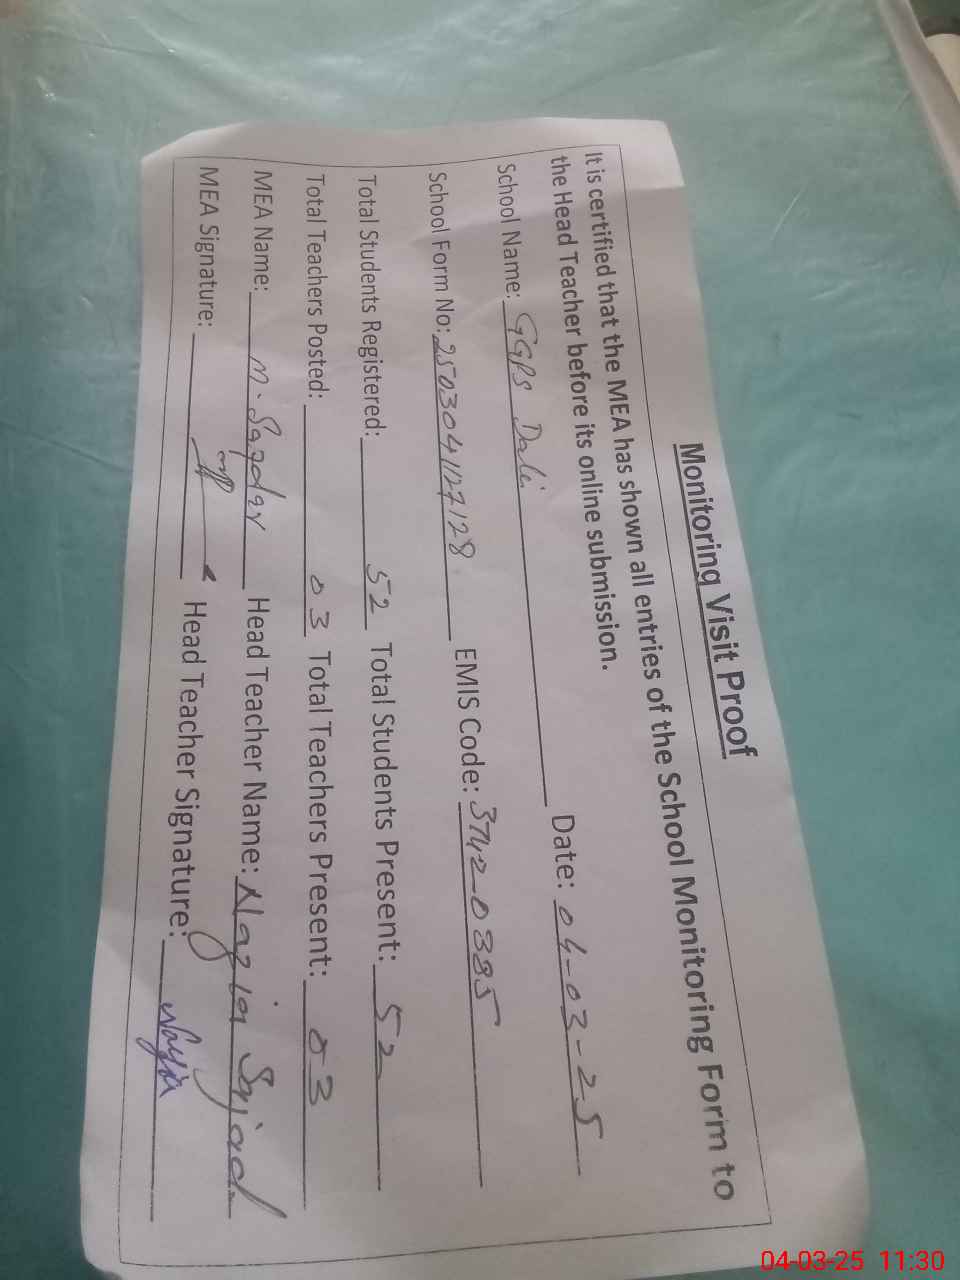 Monitoring Visit Proof
It is certified that the MEA has shown all entries of the School Monitoring Form to
the Head Teacher before its online submission.
School Name: GGPS Dalei Date: 04-03-25
School Form No: 2503041127128 EMIS Code: 3742-0385
Total Students Registered: 52 Total Students Present: 52
Total Teachers Posted: 03 Total Teachers Present: 03
MEA Name: M. Safdar Head Teacher Name: Nazia Sajad
MEA Signature: Head Teacher Signature: Nazia
04-03-25 11:30